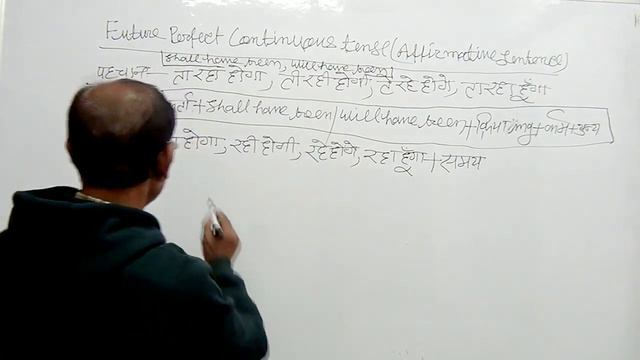 Future Perfect Continuous tense (Affirmative Sentence)
shall have been, will have been
पहचान - ता रहा होगा, ती रही होगी, ते रहे होंगे, ता रहा हूँगा
र्ता + shall have been / will have been + क्रिया ing + कर्म + अन्य
होगा, रही होगी, रहे होंगे, रहा हूँगा + समय